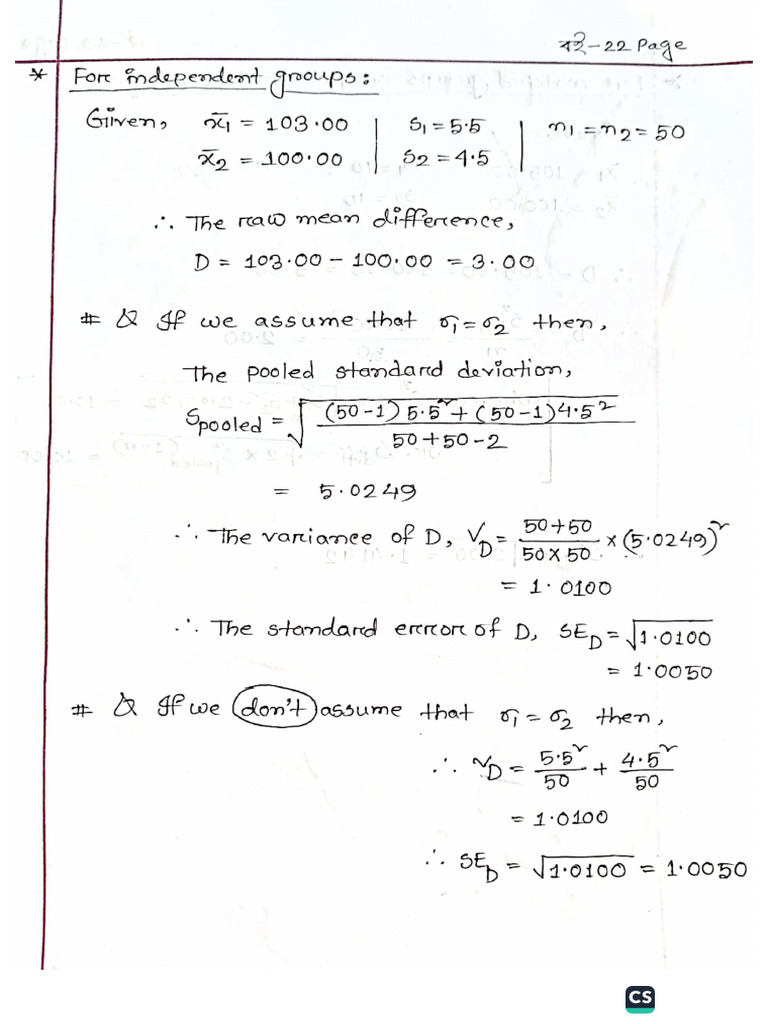 বই-22 Page
* For independent groups:
Given, x̄₁ = 103.00 | S₁ = 5.5 | n₁ = n₂ = 50
x̄₂ = 100.00 | S₂ = 4.5
∴ The raw mean difference,
D = 103.00 - 100.00 = 3.00
# If we assume that σ₁ = σ₂ then,
The pooled standard deviation,
S_pooled = √(((50-1) 5.5² + (50-1) 4.5²) / (50+50-2))
= 5.0249
∴ The variance of D, V_D = (50+50)/(50×50) × (5.0249)²
= 1.0100
∴ The standard error of D, SE_D = √1.0100
= 1.0050
# If we don't assume that σ₁ = σ₂ then,
∴ V_D = 5.5²/50 + 4.5²/50
= 1.0100
∴ SE_D = √1.0100 = 1.0050
CS